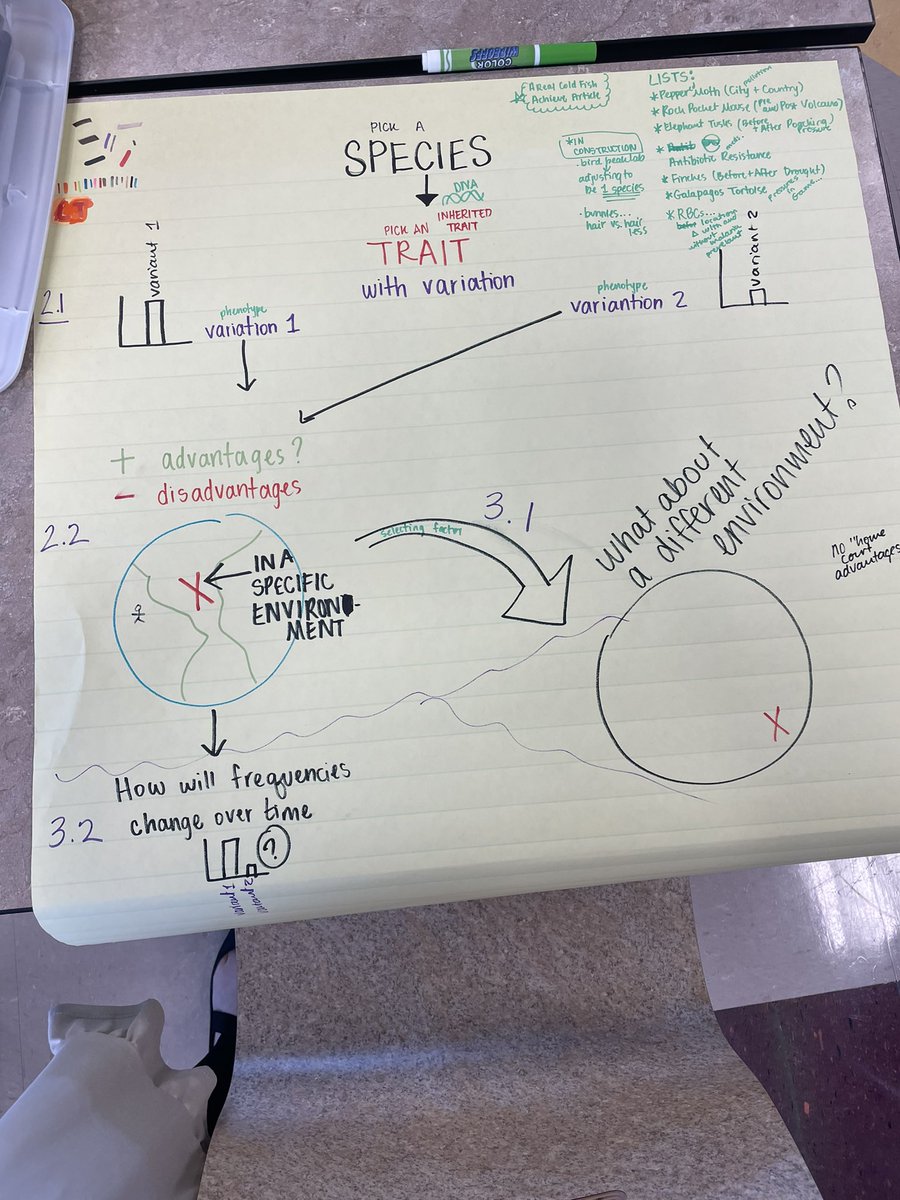 COLOR WONDER
PICK A
SPECIES
DNA
INHERITED
TRAIT
PICK AN
TRAIT
with variation
A Real Cold Fish
Achieve Article
*IN
CONSTRUCTION
·bird beak lab
adjusting to
be 1 species
·bunnies...
hair vs. hair
less
LISTS:
pollution
*Pepper Moth (City + Country)
*Rock Pocket Mouse (Pre and Post Volcano)
*Elephant Tusks (Before + After Poaching)
Pressure
*Antib
Antibiotic Resistance
*Finches (Before + After Drought)
*Galapagos Tortoise
*RBCs...
location
with and
without
malaria
prevalent
2.1
variant 1
phenotype
variation 1
phenotype
variantion 2
variant 2
+ advantages?
- disadvantages
2.2
IN A
SPECIFIC
ENVIRON-
MENT
selecting factor
3.1
What about
a different
environment?
no "home
court
advantages
X
X
How will frequencies
3.2 change over time
?
variant 1
variant 2